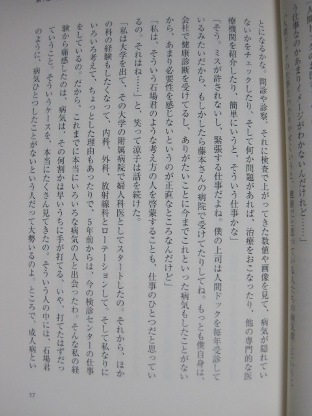 とになるかな。問診や診察、それに検査で上がってきた数値や画像を見て、病気が隠れてい
ないかをチェックしたり、そして何か問題があれば、治療をおこなったり、他の専門的な医
療機関を紹介したり、簡単にいうと、そういう仕事かな」
「そう、ミスが許されないし、緊張する仕事だよね。僕の上司は人間ドックを毎年受診して
いるみたいだから、もしかしたら藤本さんの病院で受けてたりしてね。もっとも僕自身は、
会社で健康診断を受けてるし、ありがたいことに今までこれといった病気もしたことがない
から、あまり必要性を感じないというのが正直なところなんだけど」
「私は、そういう石場君のような考え方の人を啓蒙することも、仕事のひとつだと思ってい
るの。それはね……」と、笑って涼子は話を続けた。
「私は大学を出て、その大学の附属病院で婦人科医としてスタートしたの。それから、ほか
の科の経験もしたくなって、内科、外科、放射線科とローテーションして、そして私なりに
いろいろ考えて、ちょっとした理由もあったりで、5年前からは、今の検診センターの仕事
をしているの。だから、これまでに本当にいろいろな病気の人と出会ったわ。そんな私の経
験から痛感したのは、病気は、その何割かは早いうちに手が打てる、いや、打てたはずだっ
ていうこと。そういうケースを、本当にたくさん見てきたの。そういう人の中には、石場君
のように、病気ひとつしたことがないという人だって大勢いるのよ。ところで、成人病とい
17